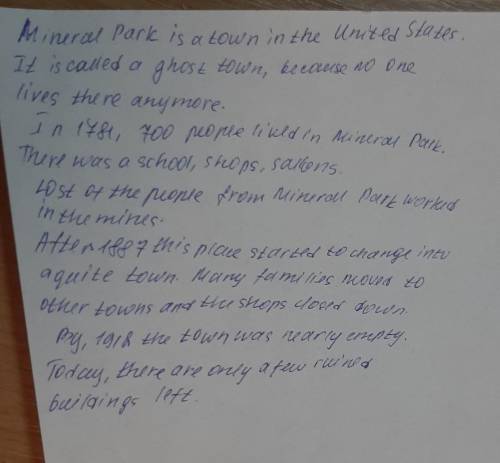 Mineral Park is a town in the United States.
It is called a ghost town, because no one
lives there anymore.
In 1781, 700 people lived in Mineral Park.
There was a school, shops, sallons.
Lost of the people from Mineral Park worked
in the mines.
After 1887 this place started to change into
a quite town. Many families moved to
other towns and the shops closed down.
By, 1918 the town was nearly empty.
Today, there are only a few ruined
buildings left.